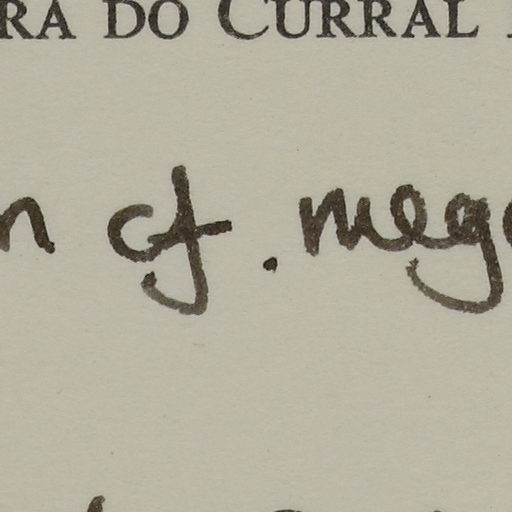 RA DO CURRAL
n cf. mega